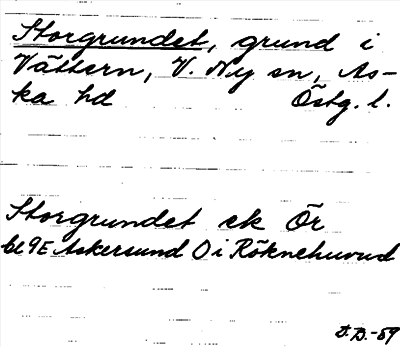 Storgrundet, grund i
Vättern, V. Ny sn, As-
ka hd Östg. l.
Storgrundet ek Ör
bl 9E Askersund O i Röknehuvud
D.D.-59